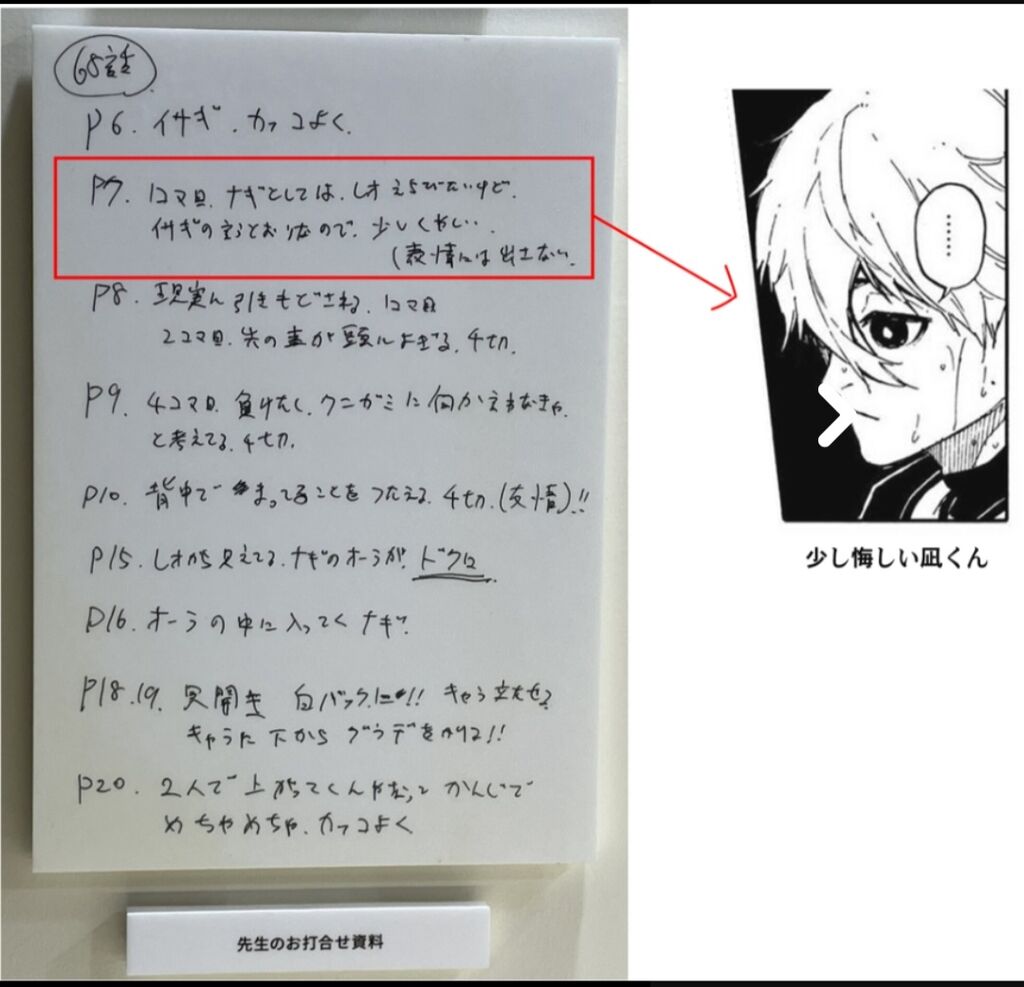 68話
P6. イサギ.カッコよく.
P7. 1コマ目.ナギとしては.レオえらびたいけど.
イサギの言うとおりなので.少しくやしい.
(表情には出さない.
P8. 現実に引きもどされる.1コマ目
2コマ目.先の事が頭によぎる.4切.
P9. 4コマ目.負けたく.クニガミに向かえあなきゃ.
と考えてる.4切.
P10. 背中で まってることをつたえる.4切.(友情)!!
P15. レオから見えてる.ナギのオーラが.ドクロ
P16. オーラの中に入ってくナギ.
P18.19. 見開き 白バックに!! キャラ立たせる
キャラに下から グラデをかける!!
P20. 2人で上がってくんやなって かんじで
めちゃめちゃ.カッコよく
先生のお打合せ資料
……
少し悔しい凪くん